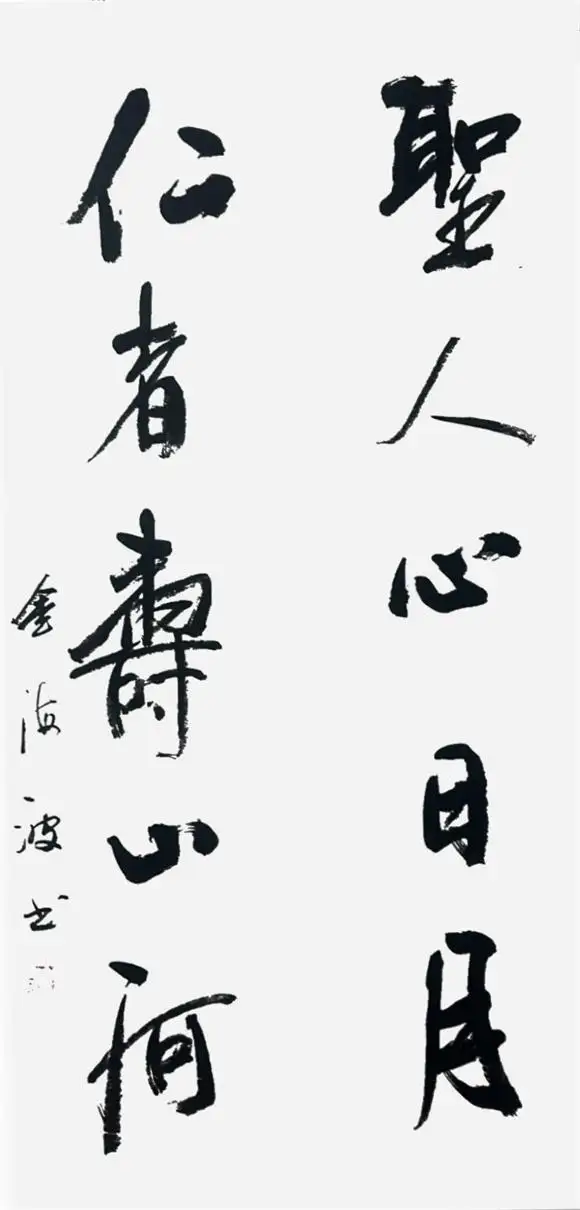 聖人心日月
仁者壽山河
金海波书